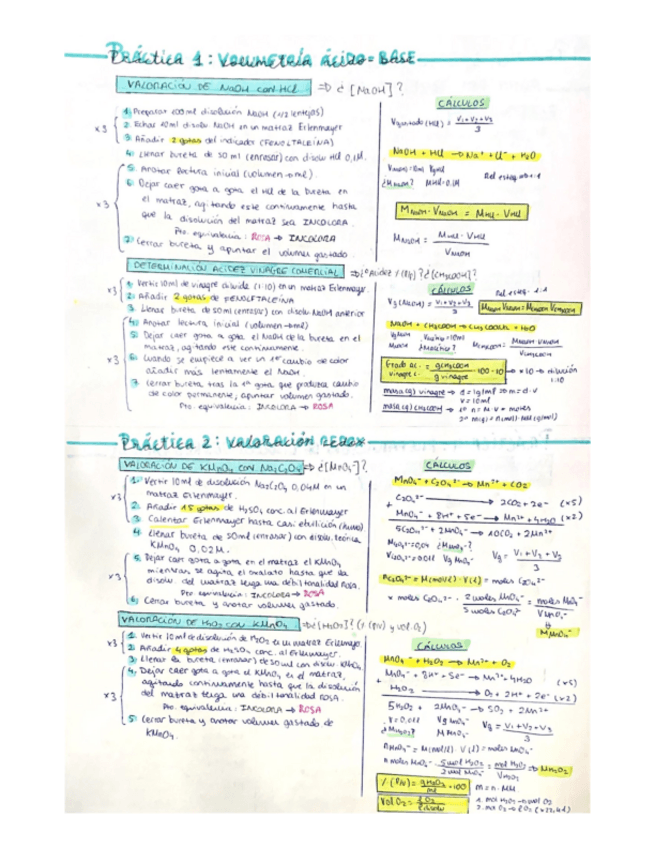 PRÁCTICA 1: VOLUMETRÍA ÁCIDO-BASE
VALORACIÓN DE NaOH CON HCl ⇒ ¿[NaOH]?
x3
1. Preparar 600ml disolución NaOH (lentejas)
2. Echar 10ml disolu NaOH en un matraz Erlenmeyer
3. Añadir 2 gotas del indicador (FENOLFTALEÍNA)
4. Llenar bureta de 50 ml (enrasar) con disolu HCl 0,1M.
x3
5. Anotar lectura inicial (volumen → ml).
6. Dejar caer gota a gota el HCl de la bureta en
el matraz, agitando este continuamente hasta
que la disolución del matraz sea INCOLORA.
Pto. equivalencia: ROSA → INCOLORA
7. Cerrar bureta y apuntar el volumen gastado.
CÁLCULOS
Vgastado (HCl) = V1+V2+V3 / 3
NaOH + HCl → Na+ + Cl- + H2O
VNaOH=10ml VgHCl
¿MNaOH? MHCl=0,1M
Rel esteq → 1:1
MNaOH · VNaOH = MHCl · VHCl
MNaOH = MHCl · VHCl / VNaOH
DETERMINACIÓN ACIDEZ VINAGRE COMERCIAL ⇒ ¿º Acidez % (P/P)? ¿[CH3COOH]?
x3
1. Vertir 10ml de vinagre diluido (1:10) en un matraz Erlenmeyer.
2. Añadir 2 gotas de FENOLFTALEÍNA
3. Llenar bureta de 50ml (enrasar) con disolu NaOH anterior
x3
4. Anotar lectura inicial (volumen → ml)
5. Dejar caer gota a gota el NaOH de la bureta en
el matraz, agitando este continuamente.
6. Cuando se empiece a ver un 1er cambio de color
añadir más lentamente el NaOH.
7. Cerrar bureta tras la 1ª gota que produzca cambio
de color permanente, apuntar volumen gastado.
Pto. equivalencia: INCOLORA → ROSA
CÁLCULOS
Rel esteq. 1:1
Vg (NaOH) = V1+V2+V3 / 3
MNaOH VNaOH = MCH3COOH VCH3COOH
NaOH + CH3COOH → CH3COONa + H2O
VgNaOH Vvinagre=10ml
MNaOH ¿Mvinagre?
MCH3COOH = MNaOH VNaOH / VCH3COOH
Grado ac. vinagre c. = g CH3COOH / g vinagre · 100 · 10 → x10 → dilución 1:10
masa (g) vinagre → d = 1g/ml ⇒ m = d·V
V = 10ml
masa (g) CH3COOH → 1º n = M·V = moles
2º m(g) = n(mol) · MM (g/mol)
PRÁCTICA 2: VALORACIÓN REDOX
VALORACIÓN DE KMnO4 CON Na2C2O4 ⇒ ¿[MnO4-]?
x3
1. Vertir 10ml de disolución Na2C2O4 0,04M en un
matraz Erlenmeyer.
2. Añadir 15 gotas de H2SO4 conc. al Erlenmeyer
3. Calentar Erlenmeyer hasta casi ebullición (humo)
4. Llenar bureta de 50ml (enrasar) con disolu. teórica
KMnO4 0,02M.
x3
5. Dejar caer gota a gota en el matraz el KMnO4
mientras se agita el oxalato hasta que la
disolu. del matraz tenga una débil tonalidad ROSA.
Pto. equivalencia: INCOLORA → ROSA
6. Cerrar bureta y anotar volumen gastado.
CÁLCULOS
MnO4- + C2O4 2- → Mn2+ + CO2
C2O4 2- → 2CO2 + 2e- (x5)
+ MnO4- + 8H+ + 5e- → Mn2+ + 4H2O (x2)
5C2O4 2- + 2MnO4- → 10CO2 + 2Mn2+
Vg = V1+V2+V3 / 3
nC2O4 2- = M(mol/l) · V(l) = moles C2O4 2-
x moles C2O4 2- · 2 moles MnO4- / 5 moles C2O4 2- = moles MnO4- / VMnO4-
MMnO4-
VALORACIÓN DE H2O2 CON KMnO4 ⇒ ¿[H2O2]? (% (P/V) y vol. O2)
x3
1. Vertir 10ml de disolución de H2O2 en un matraz Erlenmeyer.
2. Añadir 4 gotas de H2SO4 conc. al Erlenmeyer.
3. Llenar la bureta (enrasar) de 50ml con disolu. KMnO4
x3
4. Dejar caer gota a gota el KMnO4 en el matraz,
agitando continuamente hasta que la disolución
del matraz tenga una débil tonalidad ROSA.
Pto. equivalencia: INCOLORA → ROSA
5. Cerrar bureta y anotar volumen gastado de
KMnO4.
CÁLCULOS
MnO4- + H2O2 → Mn2+ + O2
MnO4- + 8H+ + 5e- → Mn2+ 4H2O
+ H2O2 → O2 + 2H+ + 2e- (x5)
(x2)
5H2O2 + 2MnO4- → 5O2 + 2Mn2+
VgMnO4-
¿MH2O2? MMnO4-
Vg = V1+V2+V3 / 3
nMnO4- = M(mol/l) · V(l) = moles MnO4-
n moles MnO4- · 5mol H2O2 / 2mol MnO4- = mol H2O2 / VH2O2 ⇒ MH2O2
% (P/V) = gH2O2 / ml · 100
m = n · MM
Vol O2 = l O2 / l disolu
1. mol H2O2 → mol O2
2. mol O2 → l O2 (x22,4l)